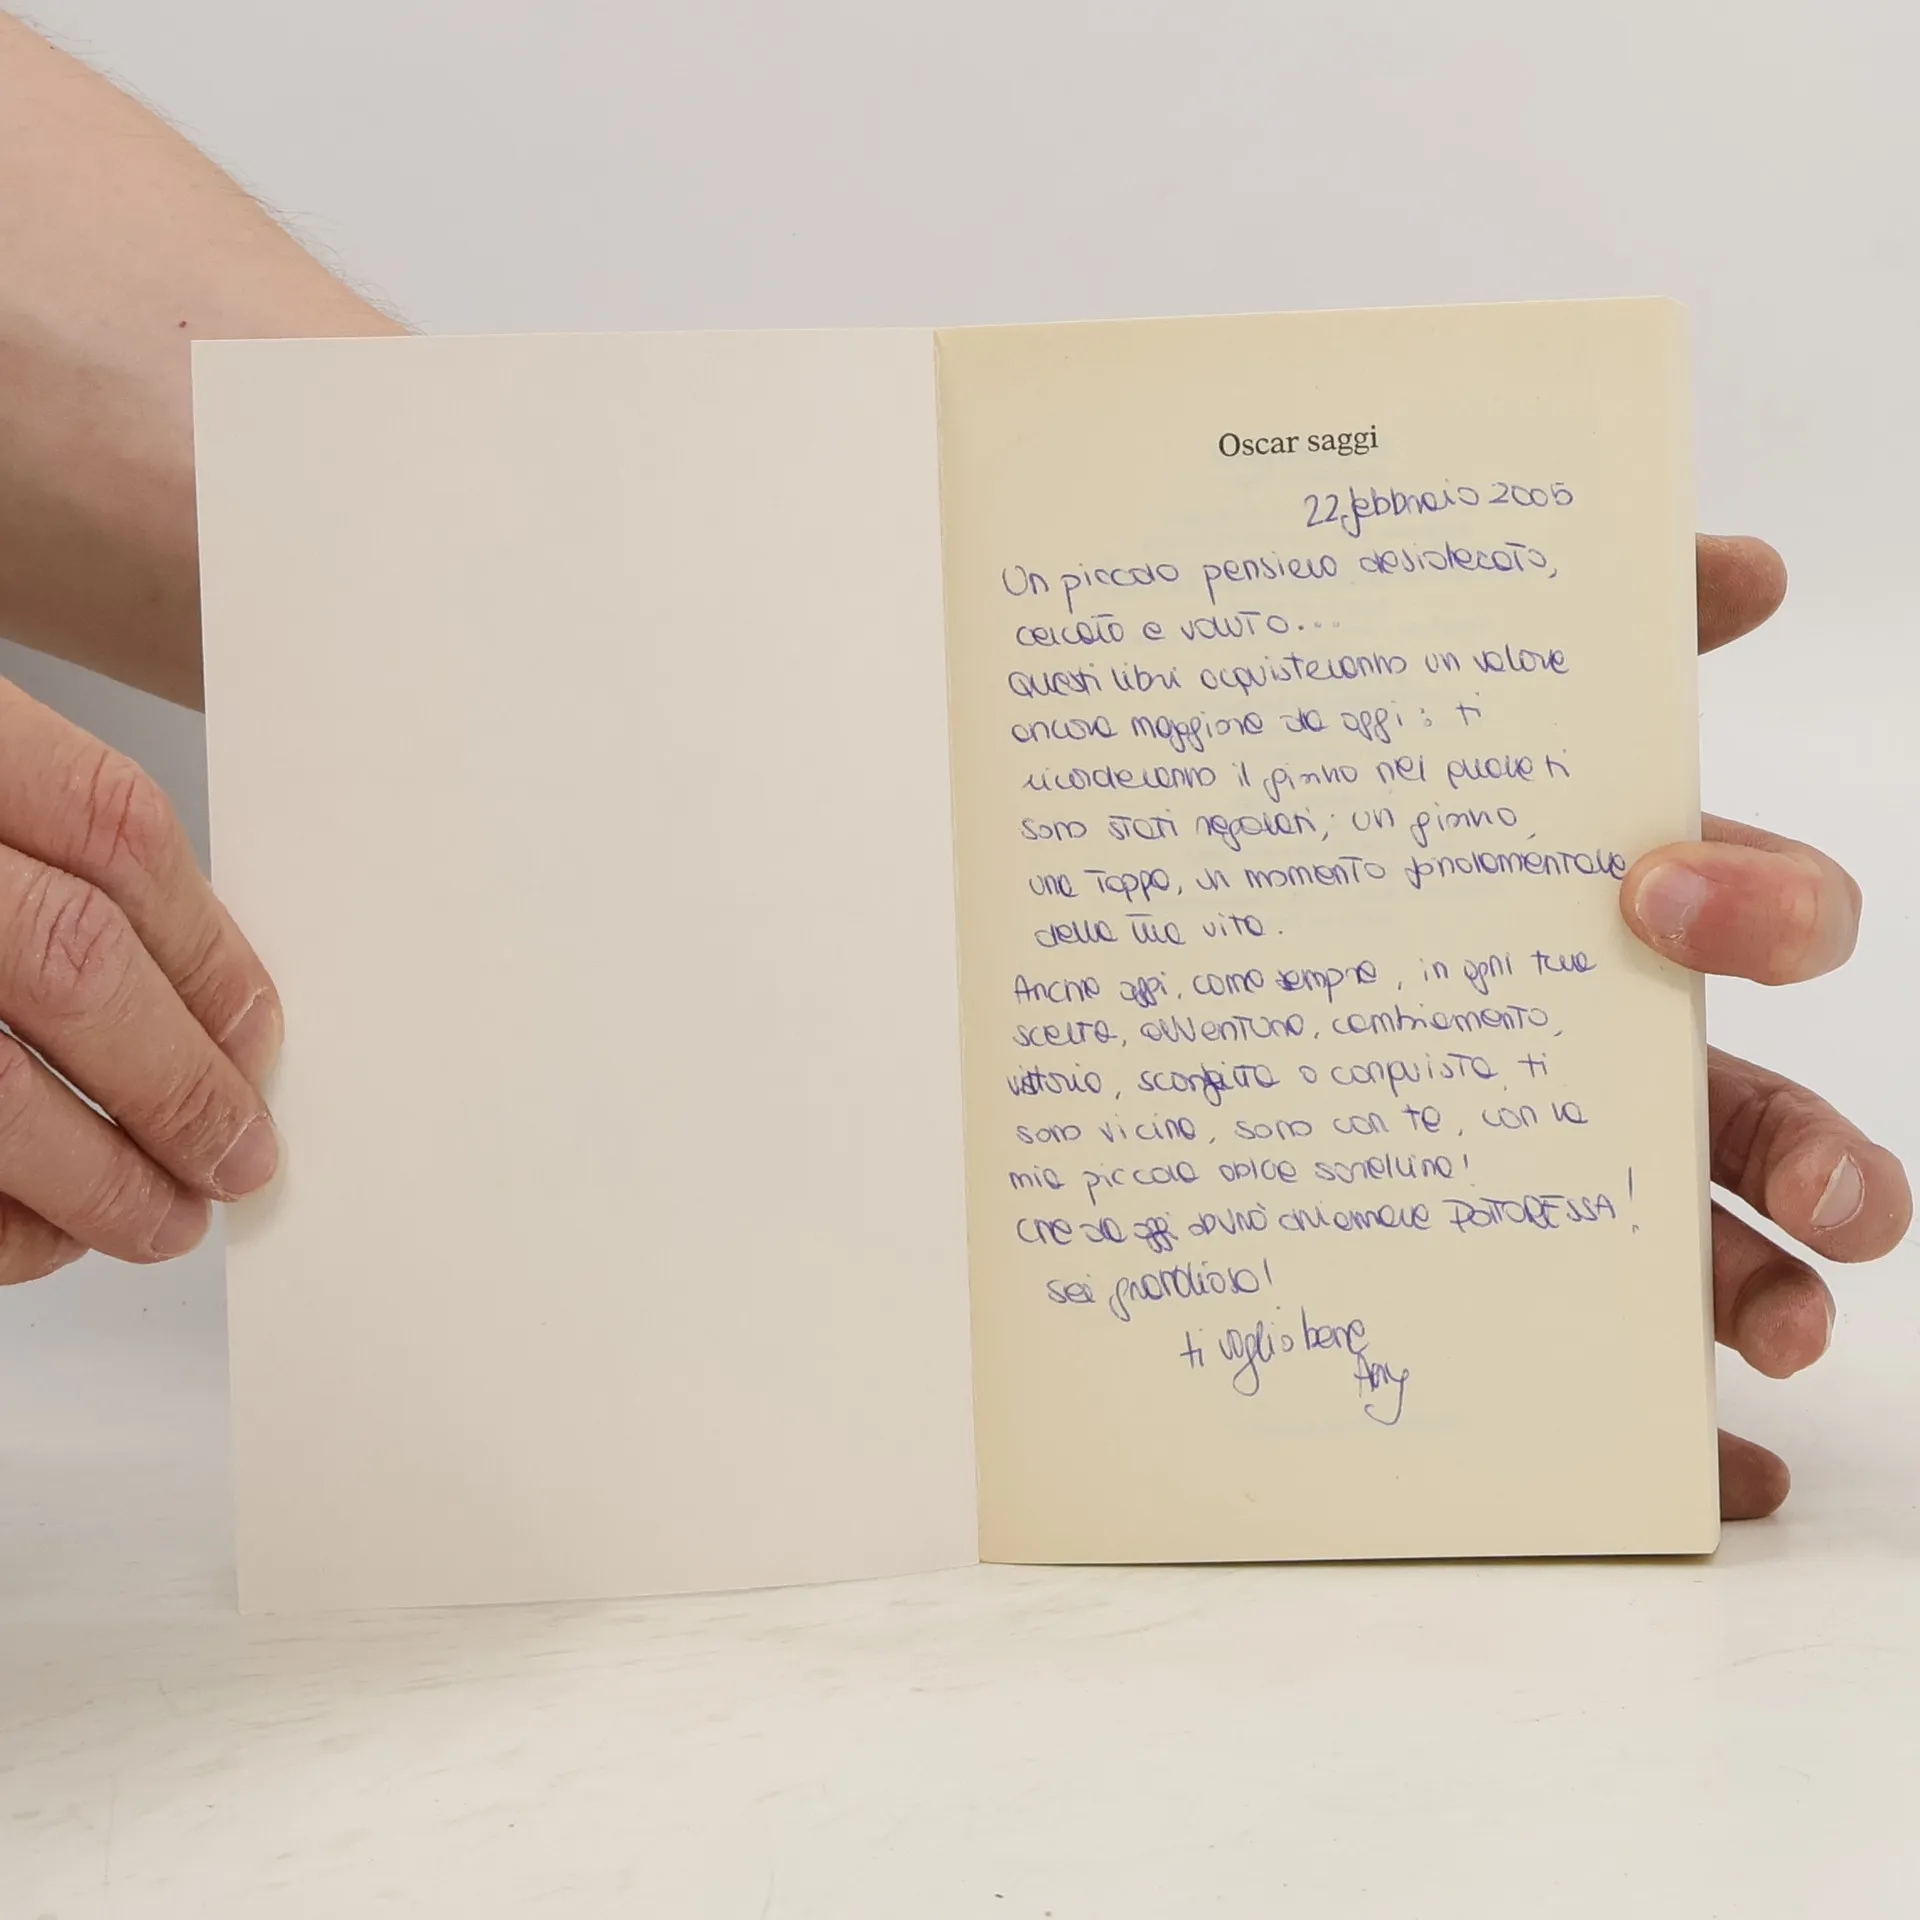 Oscar saggi
22 febbraio 2005
Un piccolo pensiero desiderato,
cercato e voluto...
questi libri acquisteranno un valore
ancora maggiore da oggi: ti
ricorderanno il giorno nel quale ti
sono stati regalati; un giorno,
una tappa, un momento fondamentale
della tua vita.
Anche oggi, come sempre, in ogni tua
scelta, avventura, cambiamento,
vittoria, sconfitta o conquista, ti
sono vicina, sono con te, con la
mia piccola dolce sorellina!
che da oggi dovrò chiamare DOTTORESSA!
sei grandiosa!
ti voglio bene